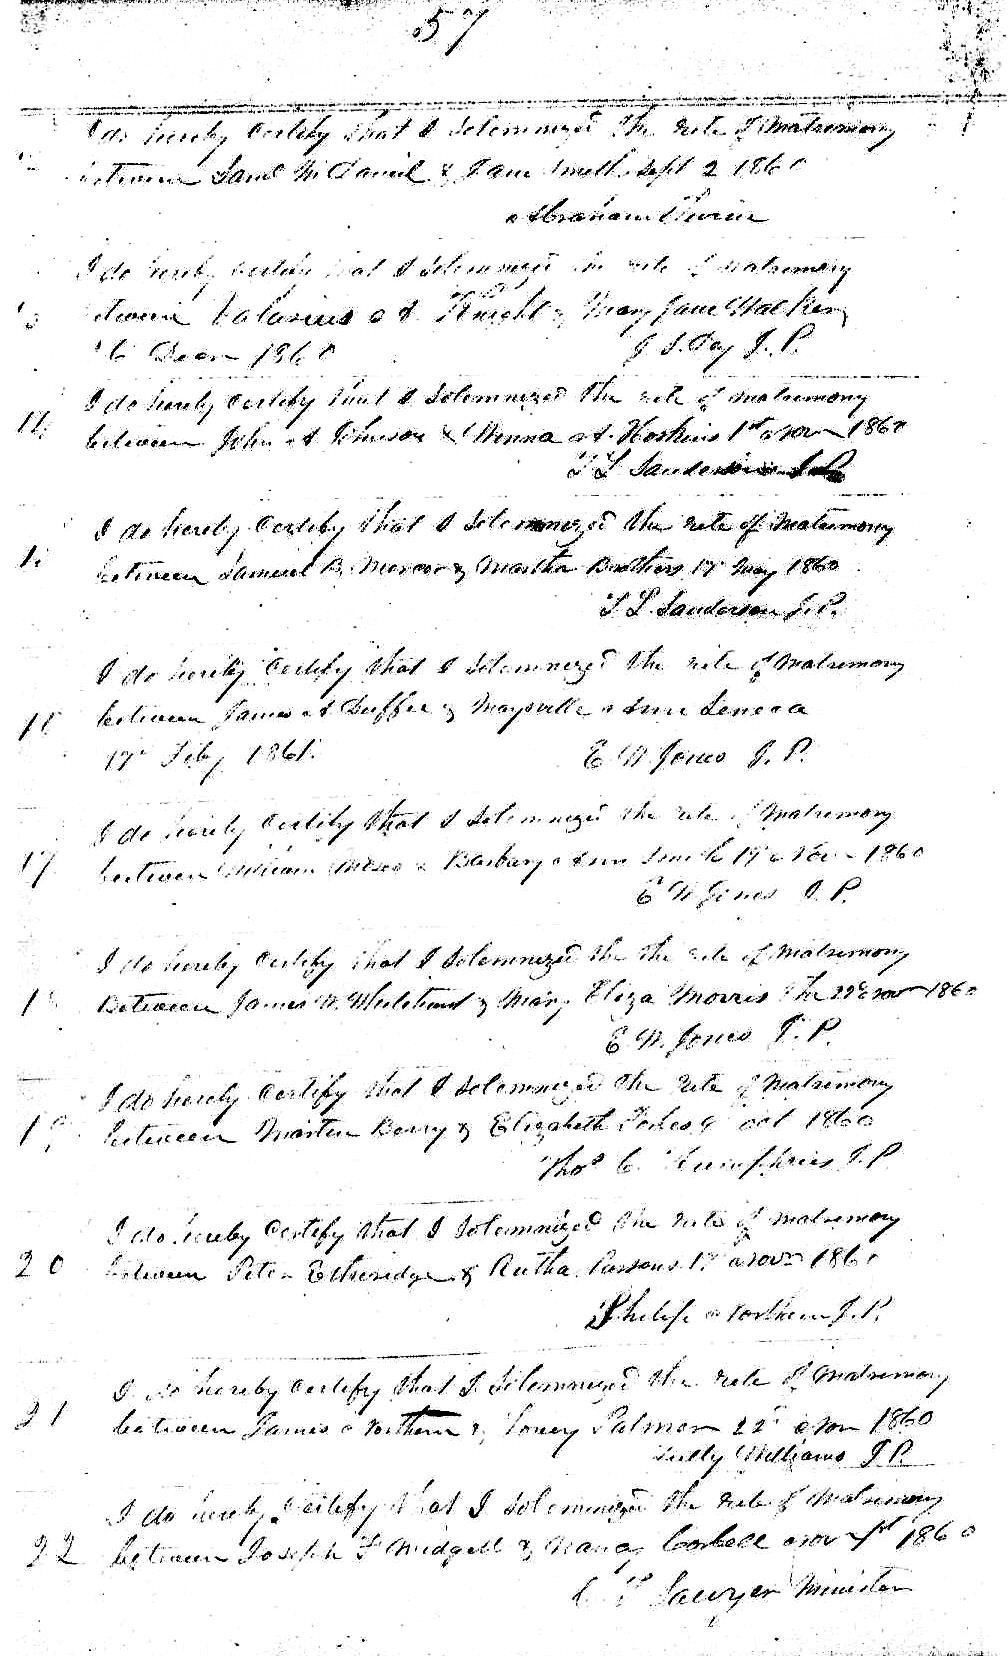 57
I do hereby Certify that I Solemnized the rite of Matrimony
between Saml McDaniel & Jane Smith Sept 2 1860
Abraham
I do hereby certify that I Solemnized the rite of Matrimony
between A Knight & Mary Jane Walker
Decm 1860
J S. Day J. P.
I do hereby certify that I Solemnized the rite of Matrimony
14 between John A Johnson & A. Hoskins 1st Novm 1860
T L Sanderson J P.
I do hereby Certify that I Solemnized the rite of Matrimony
between Samuel B. Mercer & Martha Brothers 17 May 1860
T. L. Sanderson J. P.
I do hereby Certify that I Solemnized the rite of Matrimony
between James A & Maysville Ann Seneca
17 Feby 1861.
E W Jones J. P.
I do hereby Certify that I Solemnized the rite of Matrimony
17 between William & Barbary Ann Smith 19 Nov 1860
E W Jones J. P.
I do hereby Certify that I Solemnized the the rite of Matrimony
Between James W. & Mary Eliza Morris the 22d Nov 1860
E W. Jones J. P.
I do hereby Certify that I Solemnized the Rite of Matrimony
19 between Martin Berry & Elizabeth Forbes 9 Oct 1860
Thos C. Humphries J. P
I do hereby Certify that I Solemnized the rite of Matrimony
20 between Peter Etheridge & Rutha Parsons Novm 1860
Philip Northern J. P.
I do hereby Certify that I Solemnized the rite of Matrimony
21 between James Northern & Palmer 22d Nov 1860
Tully Williams J P.
I do hereby Certify that I Solemnized the rite of Matrimony
22 between Joseph F Midgett & Nancy Corbell Nov 1st 1860
Sawyer Minister